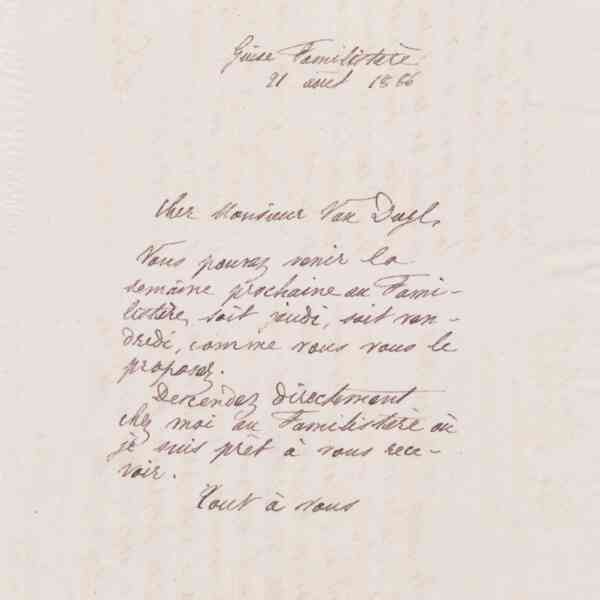 Guise Familistère
21 août 1886
Cher Monsieur Van
Vous pouvez venir la
semaine prochaine au Fami-
listère, soit jeudi, soit ven-
dredi, comme vous vous le
proposez.
Descendez directement
chez moi au Familistère où
je suis prêt à vous rece-
voir.
Tout à vous